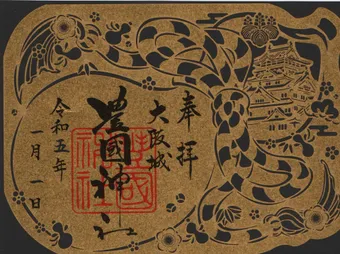 奉拝
大阪城
豊國神社
令和五年
一月一日